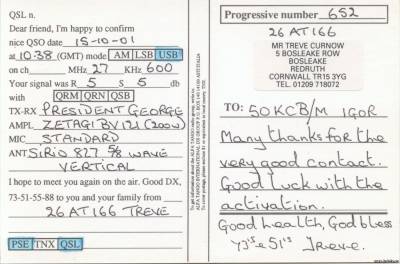 QSL n.
Dear friend, I'm happy to confirm
nice QSO date 15-10-01
at 10.38 (GMT) mode AM LSB USB
on ch MHz 27 KHz 600
Your signal was R 5 S 5 db
with QRM QRN QSB
TX-RX PRESIDENT GEORGE
AMPL. ZETAGI BV 121 (200W)
MIC STANDARD
ANT SIRIO 827 5/8 WAVE
VERTICAL
I hope to meet you again on the air. Good DX,
73-51-55-88 to you and your family from
26 AT 166 TREVE
PSE TNX QSL
Progressive number 652
26 AT 166
MR TREVE CURNOW
5 BOSLEAKE ROW
BOSLEAKE
REDRUTH
CORNWALL TR15 3YG
TEL. 01209 718072
TO: 50KCB/M IGOR
Many thanks for the
very good contact.
Good luck with the
activation.
Good health, God bless
73's e 51's Treve.